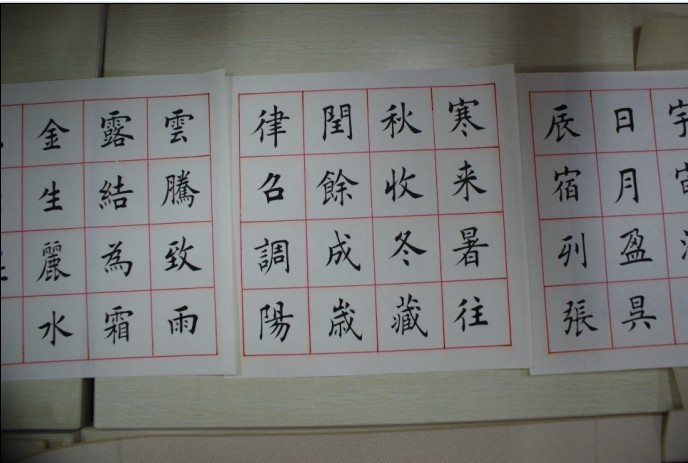 日月盈昃
辰宿列張
寒来暑往
秋收冬藏
閏餘成歳
律召調陽
雲騰致雨
露結為霜
金生麗水